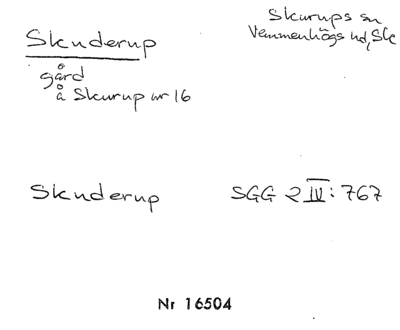 Skurups sn
Vemmenhögs hd, Sk
Skuderup
gård
å Skurup nr 16
Skuderup SGG 2 IV: 767
Nr 16504